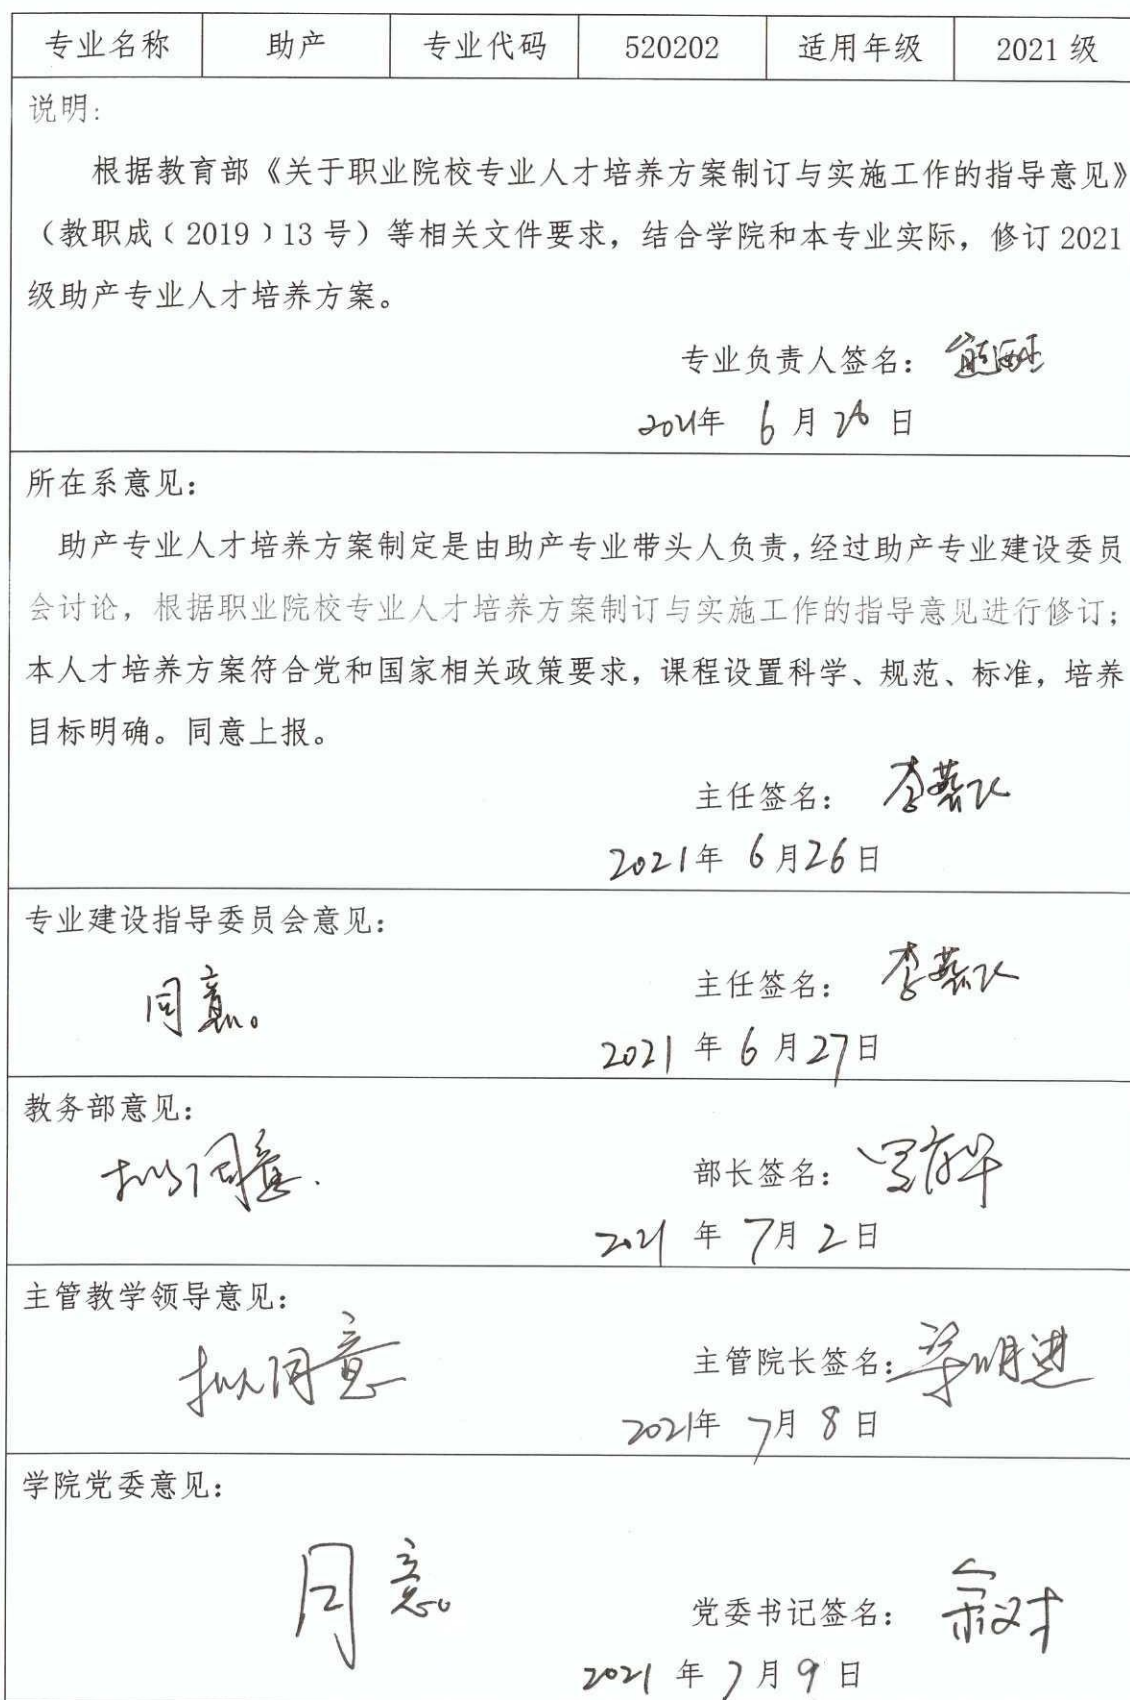 专业名称 助产 专业代码 520202 适用年级 2021 级
说明:
根据教育部《关于职业院校专业人才培养方案制订与实施工作的指导意见》
（教职成﹝2019﹞13 号）等相关文件要求，结合学院和本专业实际，修订 2021
级助产专业人才培养方案。
专业负责人签名：
2021年 6 月 26 日
所在系意见：
助产专业人才培养方案制定是由助产专业带头人负责，经过助产专业建设委员
会讨论，根据职业院校专业人才培养方案制订与实施工作的指导意见进行修订；
本人才培养方案符合党和国家相关政策要求，课程设置科学、规范、标准，培养
目标明确。同意上报。
主任签名：
2021年 6 月26日
专业建设指导委员会意见：
同意。 主任签名：
2021 年 6 月27日
教务部意见：
拟同意. 部长签名：
2021 年 7月 2 日
主管教学领导意见：
拟同意 主管院长签名：
2021年 7月 8 日
学院党委意见：
同意。 党委书记签名：
2021 年 7 月 9 日